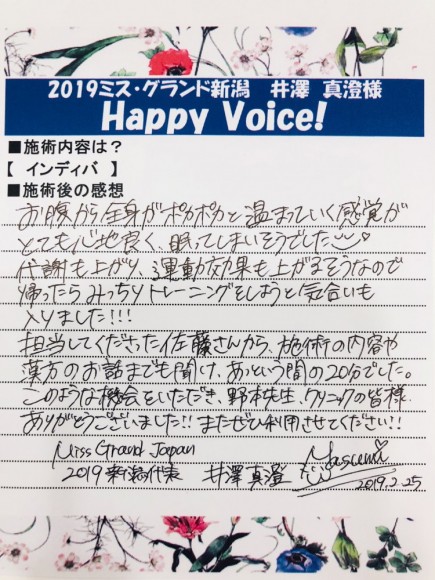 2019ミス・グランド新潟　井澤　真澄様
Happy Voice!
■施術内容は？
【 インディバ 】
■施術後の感想
お腹から全身がポカポカと温まっていく感覚が
とても心地良く、眠ってしまいそうでした♡
代謝も上がり、運動効果も上がるそうなので
帰ったらみっちりトレーニングをしようと気合いも
入りました!!!
担当してくださった佐藤さんから、施術の内容や
漢方のお話までも聞け、あっという間の20分でした。
このような機会をいただき、野本先生、クリニックの皆様
ありがとうございました!! またぜひ利用させてください!!
Miss Grand Japan
2019 新潟代表 井澤 真澄 Masumi
2019.2.25